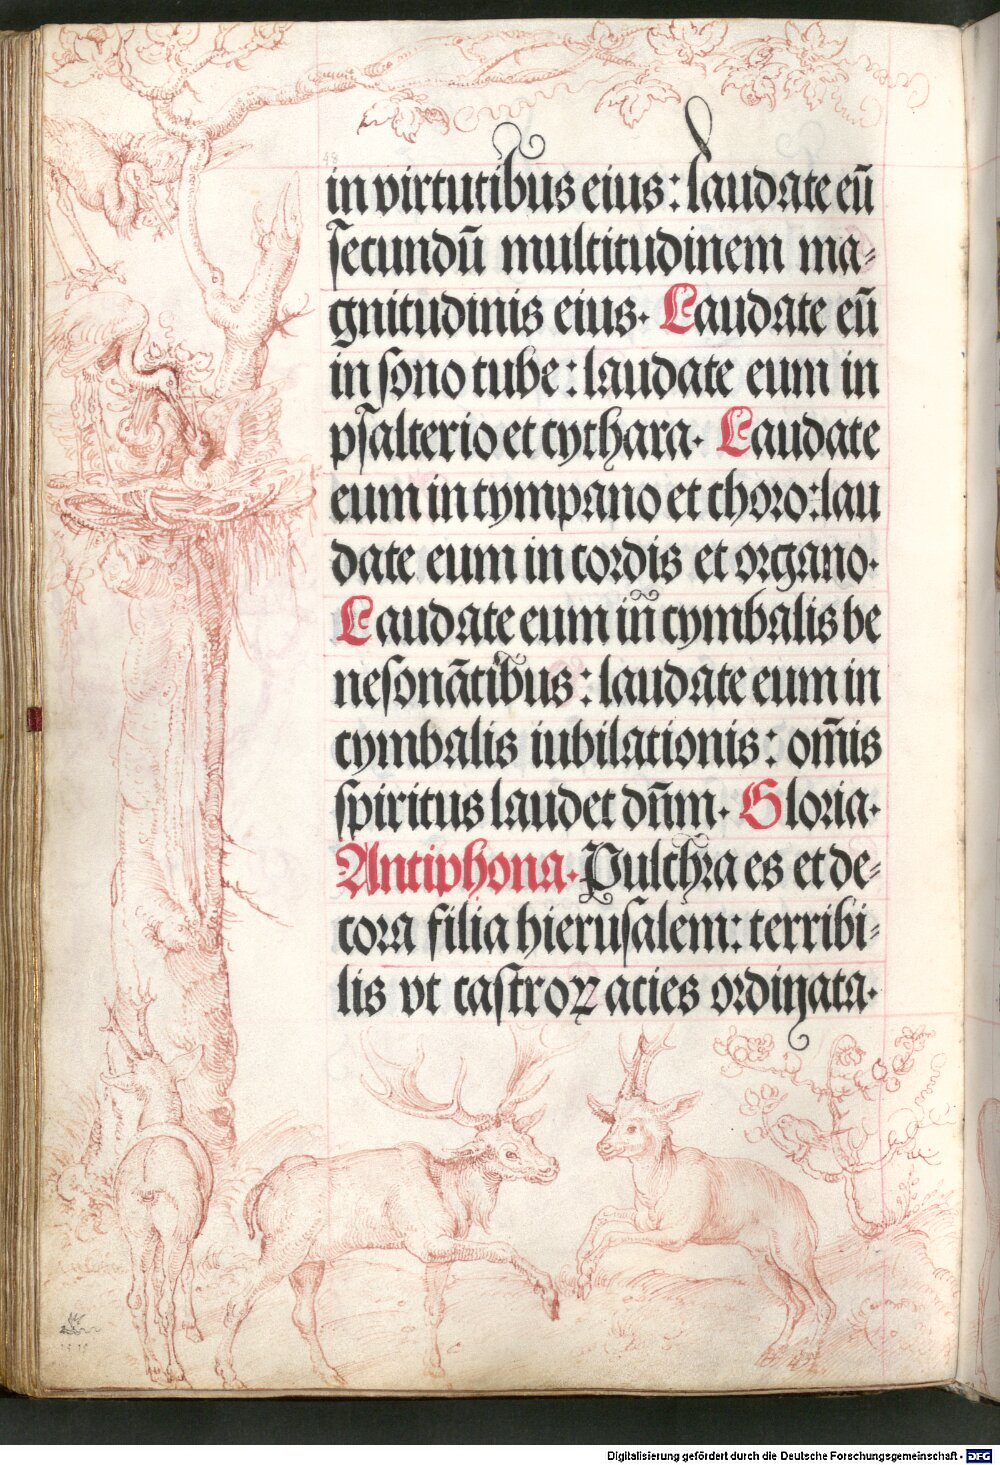 48
in virtutibus eius: laudate eū
ſecundū multitudinem ma⸗
gnitudinis eius. Laudate eū
in ſono tube: laudate eum in
pſalterio et cythara. Laudate
eum in tympano et choro: lau
date eum in cordis et organo.
Laudate eum iñ cymbalis be
neſonātibus: laudate eum in
cymbalis iubilationis: om̄is
ſpiritus laudet dn̄m. Gloria.
Antiphona. Pulchra es et de⸗
cora filia hieruſalem: terribi⸗
lis vt caſtroꝝ acies ordinata.
Digitalisierung gefördert durch die Deutsche Forschungsgemeinschaft - DFG